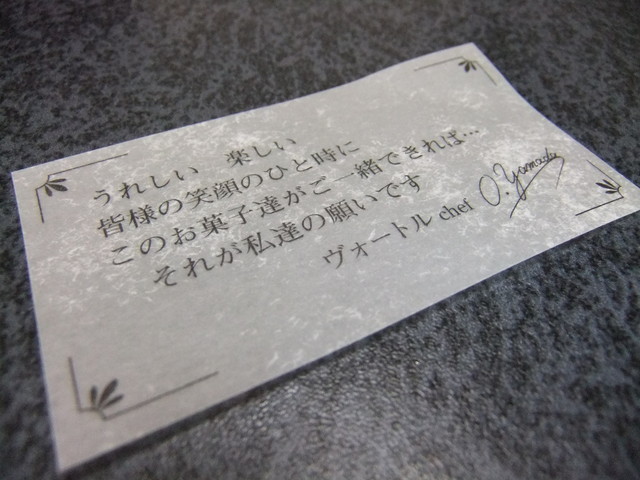 うれしい 楽しい
皆様の笑顔のひと時に
このお菓子達がご一緒できれば…
それが私達の願いです
ヴォートル chef O.Yamaoka